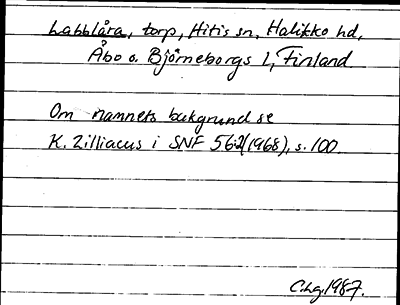 Labblåra, torp, Hitis sn, Halikko hd,
Åbo o. Björneborgs l, Finland
Om namnets bakgrund se
K. Zilliacus i SNF 56:2(1968), s. 100.
C.Lg.1987.